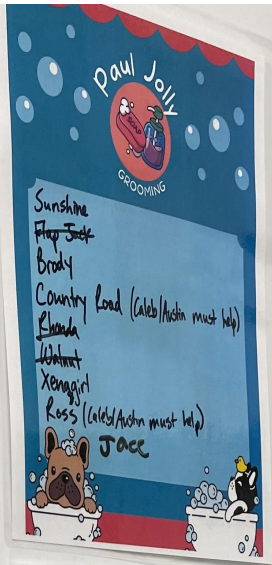 Paul Jolly
SOAP
GROOMING
Sunshine
Flap Jack
Brody
Country Road (Caleb/Austin must help)
Rhonda
Walnut
Xenagirl
Ross (Caleb/Austin must help)
Jace